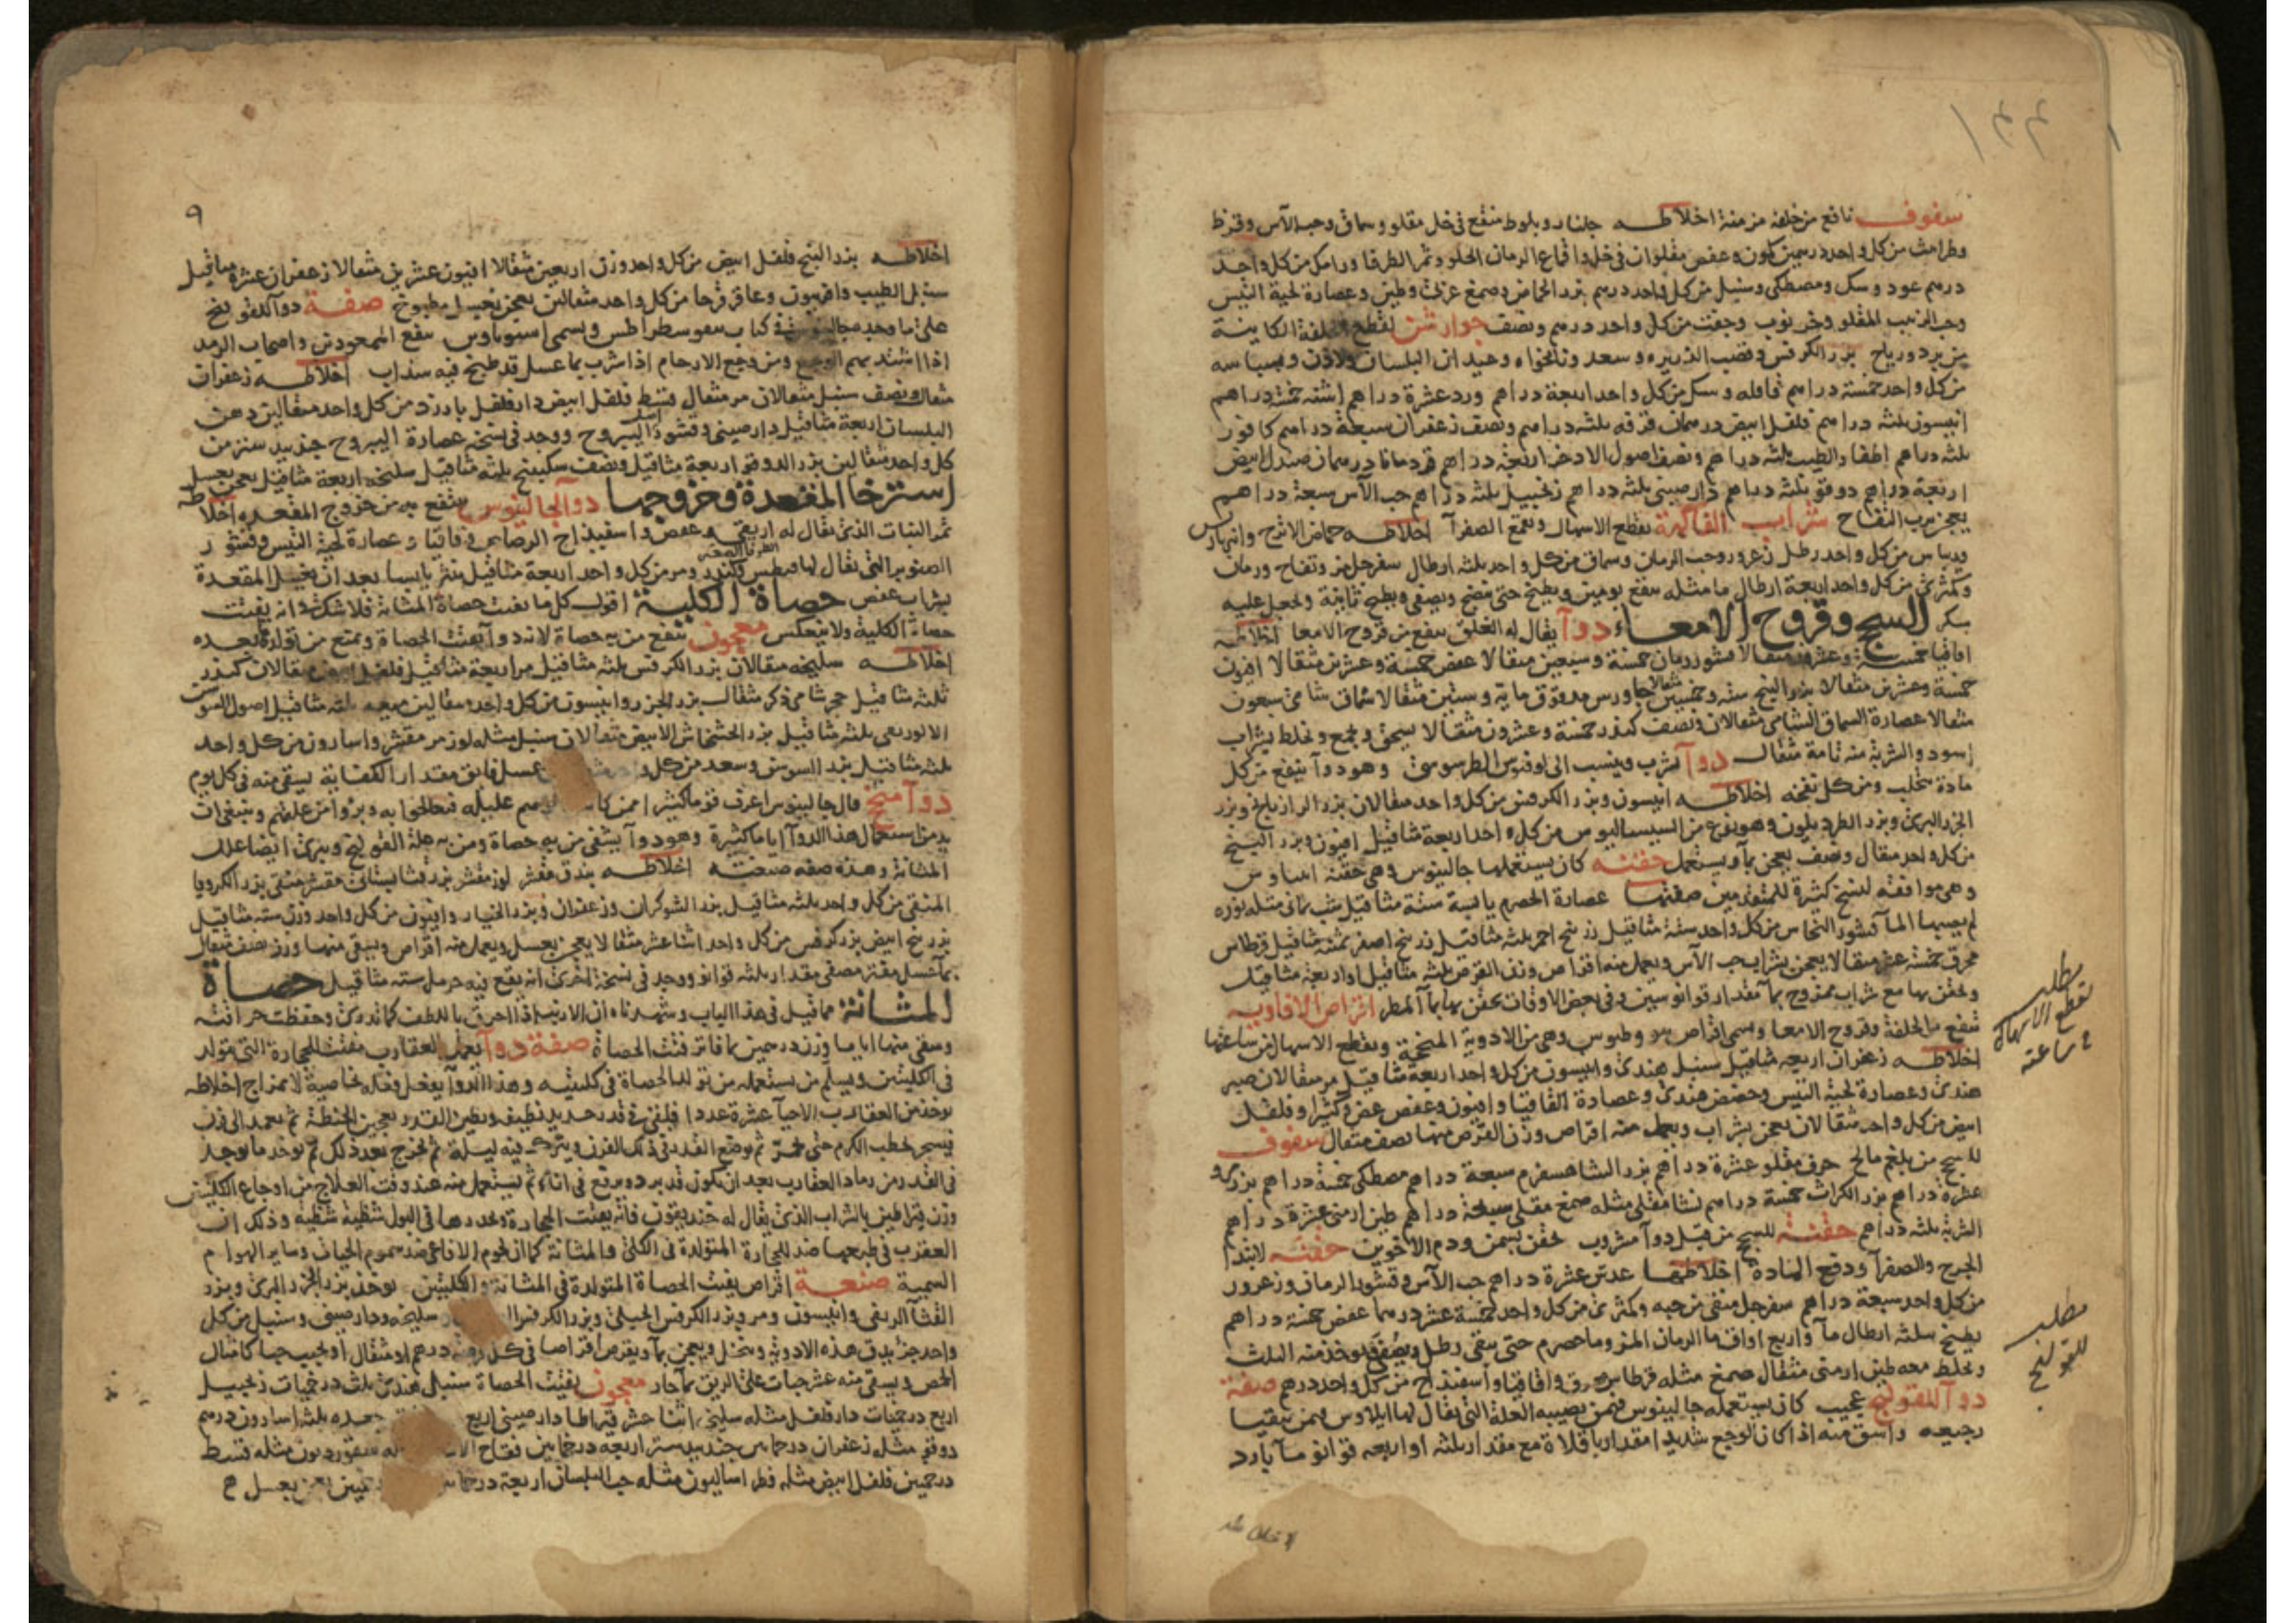 سفوف نافع من خلفة مزمنة اخلاطه جلنار وبلوط منقع في خل مقلو وسماق وحب الآس وقرظ
وطراثيث من كل واحد درهمين كمون وعفص مقلوان في خل واقماع الرمان الحلو وثمر الطرفا ورامك من كل واحد
درهم عود وسك ومصطكى وسنبل من كل واحد درهم بزر الحماض وصمغ عربي وطين وعصارة لحية التيس
وحب الزبيب المقلو وخرنوب وجفت من كل واحد درهم ونصف جوارشن لقطع الخلفة الكاينة
من برد ورياح بزر الكرفس وقصب الذريره وسعد ونانخواه وعيدان البلسان ولاذن وبسباسه
من كل واحد خمسة دراهم قاقله وسك من كل واحد اربعة دراهم ورد عشرة دراهم اشنه خمسة دراهم
انيسون ثلثه دراهم فلفل ابيض درهمان قرفه ثلثه دراهم ونصف زعفران سبعة دراهم كافور
ثلثه دراهم اظفار الطيب ثلثه دراهم ونصف اصول الاذخر اربعة دراهم قردمانا درهمان صندل ابيض
اربعة دراهم دوقو ثلثه دراهم دارصيني ثلثه دراهم زنجبيل ثلثه دراهم حب الآس سبعة دراهم
يعجن برب التفاح شراب الفاكهة يقطع الاسهال ويقمع الصفرآ اخلاطه حماض الاترج وانبرباريس
وريباس من كل واحد رطل زعرور وحب الرمان وسماق من كل واحد ثلثه ارطال سفرجل مز وتفاح ورمان
وكمثرى من كل واحد اربعة ارطال ما مثله ينقع يومين ويطبخ حتى ينضج ويصفى ويطبخ ثانية ويجعل عليه
سكر السحج وقروح الامعاء دوآ يقال له الفلق ينفع من قروح الامعا اخلاطه
اقاقيا خمسة وعشرون مثقالا قشور رمان خمسة وسبعين مثقالا عفص خمسة وعشرين مثقالا افيون
خمسة وعشرين مثقالا بزر البنج ستة وخمسين مثقالا جاورس مدقوق مايه وستين مثقالا سماق شامي سبعون
مثقالا عصارة السماق الشامي مثقالان ونصف كندر خمسة وعشرون مثقالا يسحق ويجمع ويخلط بشراب
اسود والشربة منه تامة مثقال دوآ يشرب وينسب الى اوفنوس الطرسوسي وهو دوآ ينفع من كل
مادة تتحلب ومن كل نفخه اخلاطه انيسون وبزر الكرفس من كل واحد مثقالان بزر الرازيانج وبزر
الجزر البري وبزر الطرديلون وهو نوع من السيساليوس من كل واحد اربعة مثاقيل افيون وبزر البنج
من كل واحد مثقال ونصف يعجن بمآ ويستعمل حقنه كان يستعملها جالينوس وهي حقنة
وهي موافقه لنسخ كثيرة للمتقدمين صفتها عصارة الحصرم يابسة ستة مثاقيل شب يماني مثله نوره
لم يصبها المآ قشور النحاس من كل واحد ستة مثاقيل زرنيخ احمر ثلثه مثاقيل زرنيخ اصفر ثلثه مثاقيل قرطاس
محرق خمسة عشر مثقالا يعجن بشراب حب الآس ويعمل منه اقراص وزن القرص ثلثه مثاقيل او اربعة مثاقيل
ويحقن بها مع شراب ممزوج بمآ مقدار قوانوسين وفي بعض الاوقات يحقن بها بمآ المطر اقراص الافاويه
تنفع من الخلفة وقروح الامعا وتسمى اقراص وطبوس وهي من الادوية المنجحة ويقطع الاسهال من ساعتها
اخلاطه زعفران اربعه مثاقيل سنبل هندي وانيسون من كل واحد اربعة مثاقيل مر مثقالان صبر
هندي وعصارة لحية التيس وحضض هندي وعصارة القاقيا وافيون وعفص غض وكثيرا وفلفل
ابيض من كل واحد مثقالان يعجن بشراب ويعمل منه اقراص وزن القرص منها نصف مثقال سفوف
للسحج من بلغم مالح حرف مقلو عشرة دراهم بزر الشاهسفرم سبعة دراهم مصطكى خمسة دراهم بزر
عشرة دراهم بزر الكراث خمسة دراهم نشا مقلى مثله صمغ مقلى سبعة دراهم طين ارمني عشرة دراهم
الشربة ثلثه دراهم حقنة للسحج من قبل دوآ مشروب تحقن بسمن ودم الاخوين حقنه لابتدا
الجرح والصفرآ ودفع المادة اخلاطها عدس عشرة دراهم حب الآس وقشور الرمان وزعرور
من كل واحد سبعة دراهم سفرجل منقى من حبه وكمثرى من كل واحد خمسة عشر درهما عفص خمسة دراهم
يطبخ بثلثه ارطال مآ واربع اواق ما الرمان المز وما حصرم حتى يبقى رطل ويصفى ويؤخذ منه الثلث
ويخلط معه طين ارمني مثقال صمغ مثله قرطاس محرق واقاقيا واسفيذاج من كل واحد درهم صفة
دوآ للقولنج عجيب كان يستعمله جالينوس فيمن يصيبه العلة التي يقال لها ايلاوس فيمن يتقيا
رجيعه واسق منه اذا كان الوجع شديدا مقدار باقلاة مع مقدار ثلثه او اربعه قوانوسا مآ بارد
مطلب
لقطع الاسهال
من ساعته
مطلب
للقولنج
٩
اخلاطه بزر البنج فلفل ابيض من كل واحد وزن اربعين مثقالا افيون عشرين مثقالا زعفران عشرة مثاقيل
سنبل الطيب وافربيون وعاقرقرحا من كل واحد مثقالين يعجن بعسل مطبوخ صفة دوآ للقولنج
على ما وجد جالينوس في كتاب ويسمى ينفع المجهودين واصحاب الرمد
اذا اشتد بهم الوجع ومن وجع الارحام اذا شرب بما عسل قد طبخ فيه سذاب اخلاطه زعفران
مثقال ونصف سنبل مثقالان مر مثقال قسط فلفل ابيض دارفلفل بارزد من كل واحد مثقالين دهن
البلسان اربعة مثاقيل دارصيني وقشور اصل اليبروح ووجد في نسخه عصارة اليبروح جندبيدستر من
كل واحد مثقالين بزر الدوقو اربعة مثاقيل ونصف سكبينج ثلثه مثاقيل سليخه اربعة مثاقيل يعجن بعسل
استرخا المقعدة وخروجها دوآ لجالينوس ينفع به من خروج المقعده اخلاطه
ثمر النبات الذي يقال له اريقي وعفص واسفيذاج الرصاص وقاقيا وعصارة لحية التيس وقشور
الصنوبر التي يقال لها وكندر ومر من كل واحد اربعة مثاقيل ينثر يابسا بعد ان يغسل المقعدة
بشراب عفص حصاة الكلية اقول كل ما يفتت حصاة المثانة فلا شك انه يفتت
حصاة الكلية ولا ينعكس معجون ينفع من به حصاة لانه دوآ يفتت الحصاة ويمنع من تولدها بعده
اخلاطه سليخه مثقالان بزر الكرفس ثلثه مثاقيل مر اربعة مثاقيل فلفل ابيض مثقالان كندر
ثلثه مثاقيل حجر شامي ذكر مثقال بزر الجزر وانيسون من كل واحد مثقالين ميعه ثلثه مثاقيل اصول السوسن
ثلثه مثاقيل بزر الخشخاش الابيض مثقالان سنبل مثله لوز مر مقشر واسارون من كل واحد
ثلثه مثاقيل بزر السوسن وسعد من كل واحد عسل فايق مقدار الكفاية يسقى منه في كل يوم
دوآ منجح قال جالينوس اعرف قوما كثيرا ممن عليله فتعالجوا به وبرؤا من علتهم وينبغي ان
يدمن استعمال هذا الدوآ اياما كثيرة وهو دوآ يشفى من به حصاة ومن به علة القولنج ويبرئ ايضا علل
المثانة وهذه صفه صنعته اخلاطه بندق مقشر لوز مقشر بزر قثا بستاني مقشر منقى بزر الكرويا
المنقى من كل واحد ثلثه مثاقيل بزر الشوكران وزعفران وبزر الخيار وافيون من كل واحد وزن سته مثاقيل
بزر بنج ابيض بزر كرفس من كل واحد اثنا عشر مثقالا يعجن بعسل ويعمل منه اقراص ويسقى منها وزن نصف مثقال
بمآ عسل مفتر مصفى مقدار ثلثه قوانو ووجد في نسخة اخرى انه يقع فيه حرمل سته مثاقيل حصاة
المثانة مما قيل في هذا الباب وشهرناه ان الارنب اذا احرق باللطف كما تدري وحفظت حراقته
وسقى منها اياما وزن درهمين بما فاتر فتت الحصاة صفة دوآ يعمل بالعقارب مفتت للحجارة التي تتولد
في الكليتين ويسلم من يستعمله من تولد الحصاة في كليتيه وهذا الدوآ يفعل فعاله بخاصية لامتزاج اخلاطه
يوخذ من العقارب الاحيآ عشرة عددا فيلقى في قدر حديد نظيف ويطين القدر بعجين الحنطة ثم يعمد الى فرن
فيسجر بحطب الكرم حتى يحمر ثم يوضع القدر في ذلك الفرن ويترك فيه ليلة ثم يخرج بعد ذلك ثم يوخذ ما يوجد
في القدر من رماد العقارب بعد ان يكون قد برد ويرفع في انآء ثم يستعمل منه عند وقت العلاج من اوجاع الكليتين
وزن قيراطين بالشراب الذي يقال له خنديقون فانه يفتت الحجارة ويحدرها في البول شظية شظية وذلك ان
العقرب في طبعها ضد للحجارة المتولدة في الكلى والمثانة كما ان لحوم الافاعي ضد سموم الحيات وساير الهوام
السمية صنعة اقراص يفتت الحصاة المتولدة في المثانة والكليتين يوخذ بزر الجزر البري وبزر
القثآ الريفي وانيسون ومر وبزر الكرفس الجبلي وبزر الكرفس سليخه ودارصيني وسنبل من كل
واحد جز يدق هذه الادوية وينخل ويعجن بمآ ويقرص اقراصا في كل درهم او مثقال او يحبب حبا كامثال
الحمص ويسقى منه عشر حبات على الريق بمآ حار معجون يفتت الحصاة سنبل هندي ثلث درخميات زنجبيل
اربع درخميات دارفلفل مثله سليخه اثنا عشر قيراطا دارصيني اربع جعده ثلثه اسارون درهم
دوقو مثله زعفران درخمي جندبيدستر اربعه درخمي فقاح سقورديون مثله قسط
درخمين فلفل ابيض مثله فطراساليون مثله حب البلسان اربعة يعجن بعسل